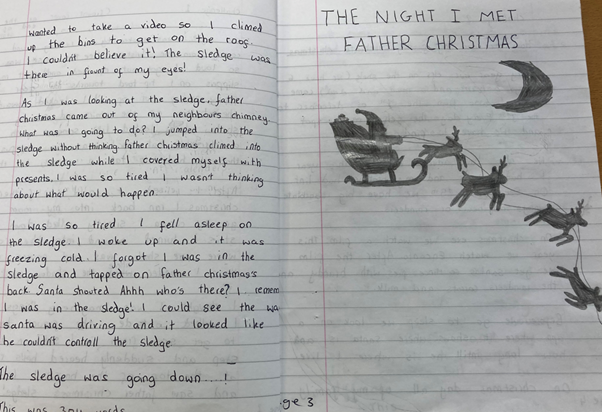 wanted to take a video so I climed
up the bins to get on the roog.
I couldn't believe it! The sledge was
there in frount of my eyes!
As I was looking at the sledge, father
christmas came out of my neighbours chimney.
What was I going to do? I jumped into the
sledge without thinking father christmas climed into
the sledge while I covered myself with
presents. I was so tired I wasnt thinking
about what would happen.
I was so tired I fell asleep on
the sledge. I woke up and it was
freezing cold. I forgot I was in the
sledge and tapped on father christmas's
back Santa shouted Ahhh who's there? I remem
I was in the sledge! I could see the wa
santa was driving and it looked like
he couldn't controll the sledge
The sledge was going down....!
This was
THE NIGHT I MET
FATHER CHRISTMAS
ge 3